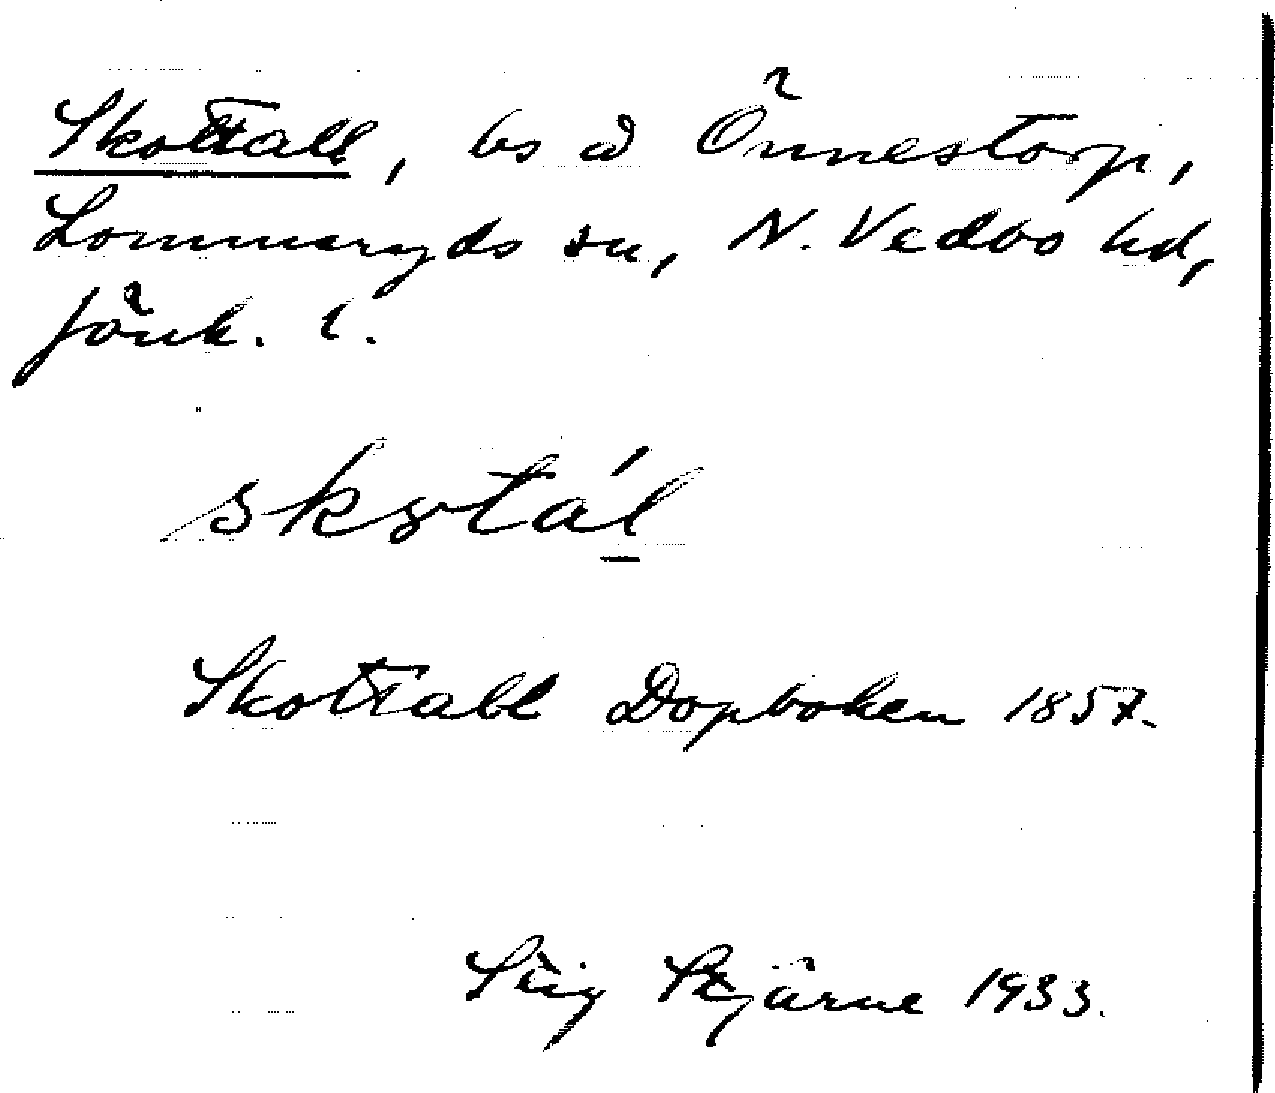 Skottall, bs å Önnestorp,
Lommaryds sn, N. Vedbo hd,
Jönk. l.
Skottall Dopboken 1857.
Stig Stjärne 1933.